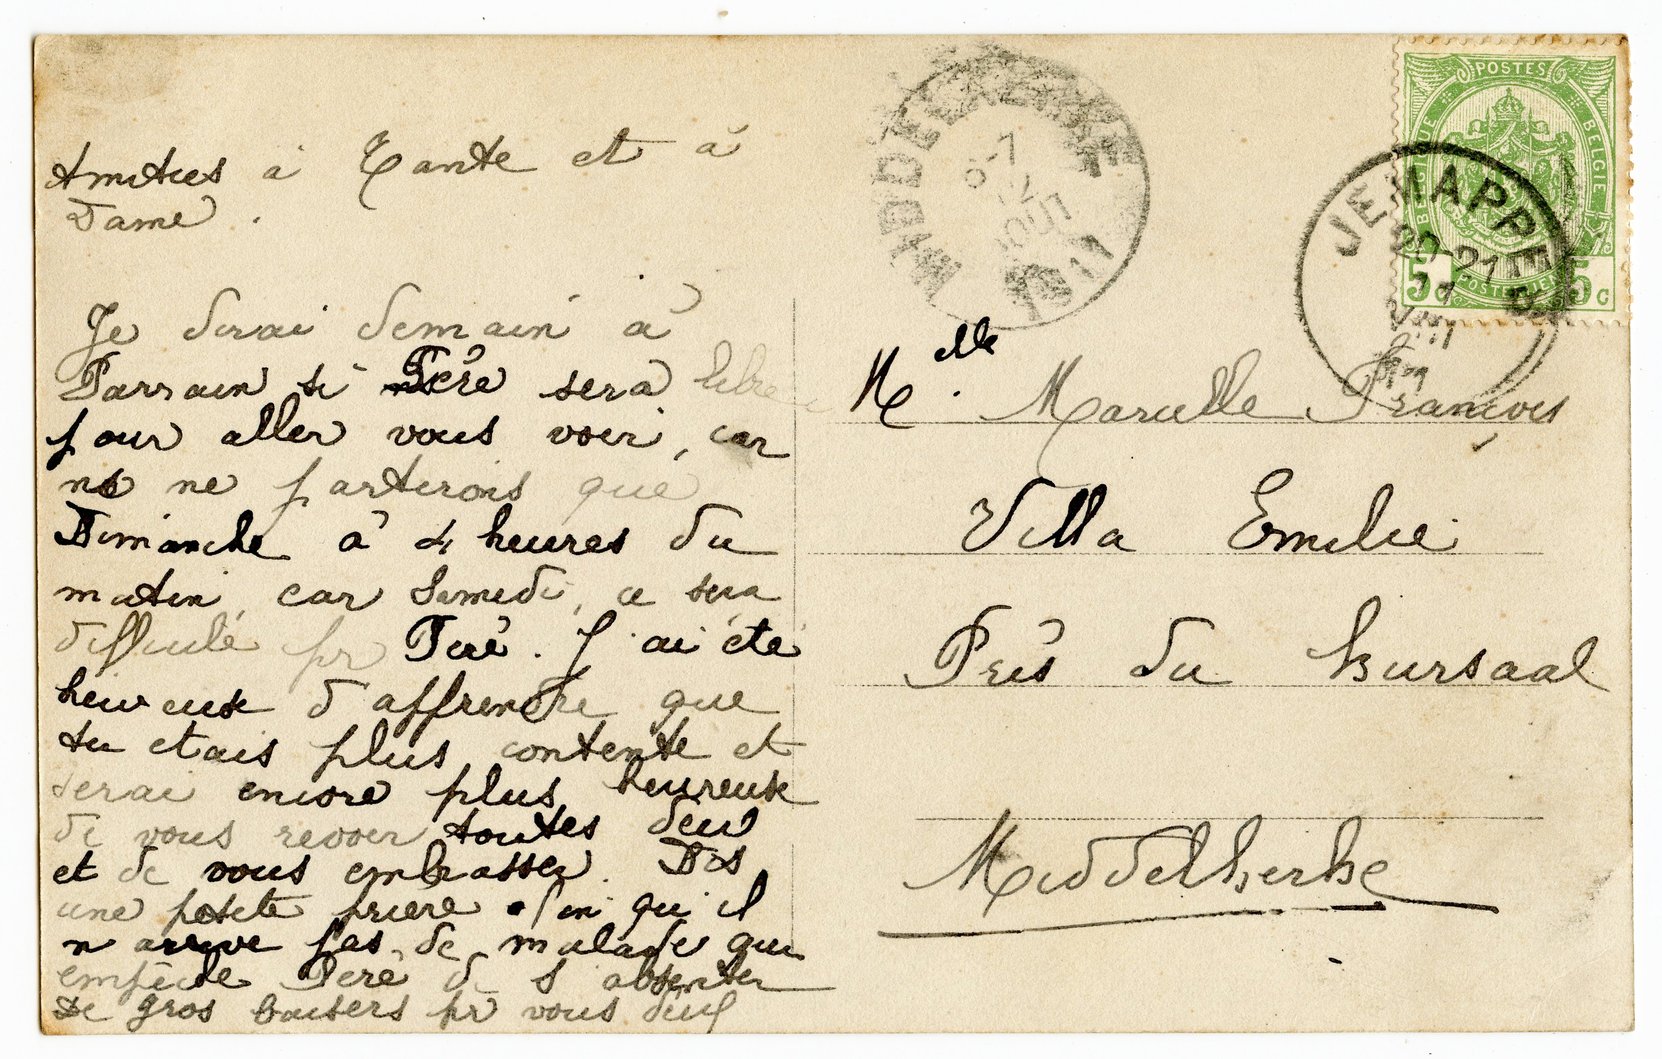 Amitiés à Tante et à
Dame.
Je dirai demain à
Parrain si Père sera libre
pour aller vous voir, car
ns ne partirons que
Dimanche à 4 heures du
matin, car Samedi, ce sera
difficile pr Père. J'ai été
heureuse d'apprendre que
tu etais plus contente et
serai encore plus heureuse
de vous revoir toutes deux
et de vous embrasser. Dis
une petite prière afin qu'il
n'arrive pas de malade qui
empêche Père de s'absenter
De gros baisers pr vous deux
MIDDELKERKE
8-7
12
AOUT
1911
POSTES
BELGIQUE
BELGIE
POSTERIJEN
5c
5c
JEMAPPES
20-21
11
VIII
1911
Melle. Marcelle François
Villa Emilie
Près du Kursaal
Middelkerke